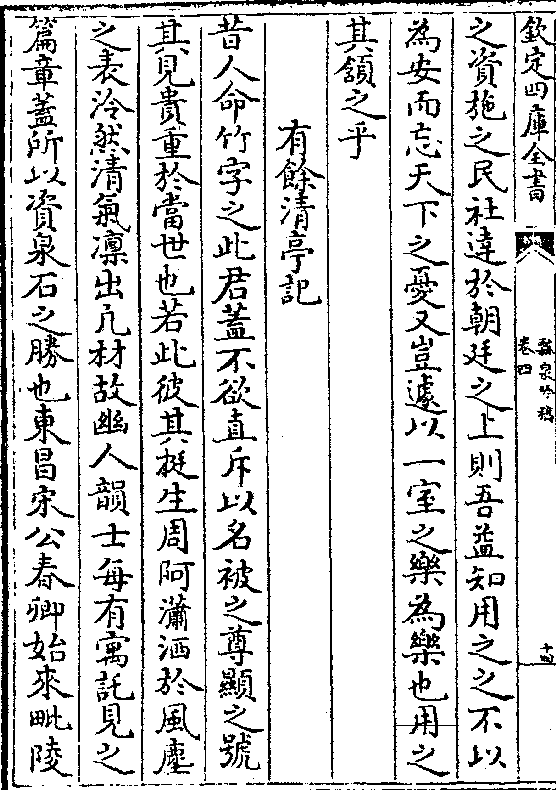 欽定四庫全書
蠡泉吟稿
卷四
十四
之資施之民社達於朝廷之上則吾益知用之之不以
為安而忘天下之憂又豈遽以一室之樂為樂也用之
其頷之乎
有餘清亭記
昔人命竹字之此君蓋不欲直斥以名被之尊顯之號
其見貴重於當世也若此彼其挺生周阿瀟洒於風塵
之表泠然清氣凛出凡材故幽人韻士每有寓託見之
篇章蓋所以資泉石之勝也東昌宋公春卿始來毗陵